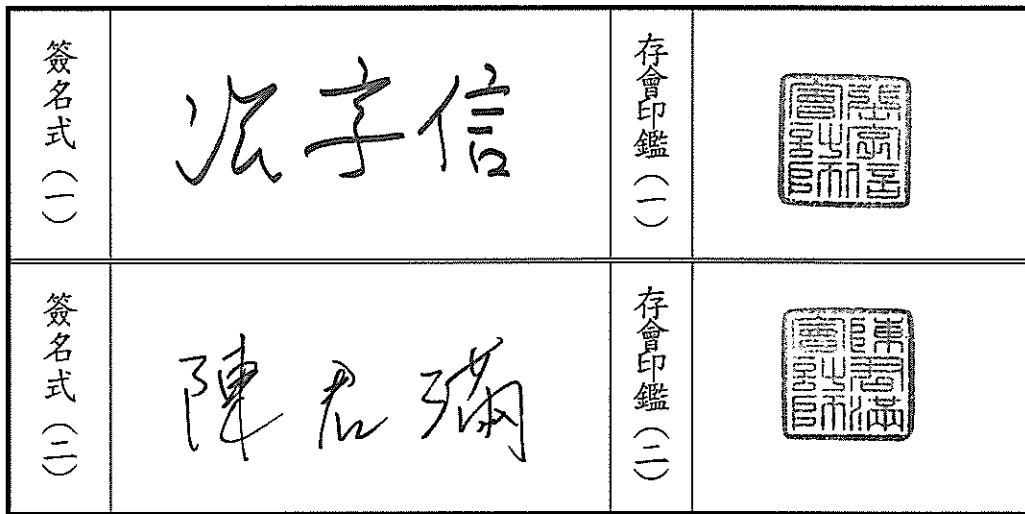 簽名式（一）
張字信
存會印鑑（一）
張字信會計師
簽名式（二）
陳君滿
存會印鑑（二）
陳君滿會計師